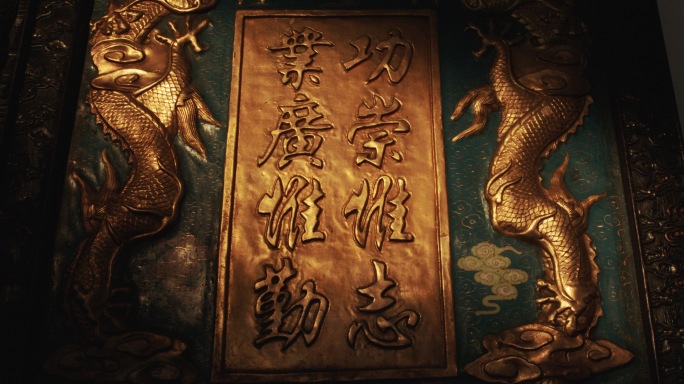 功崇惟志
業廣惟勤